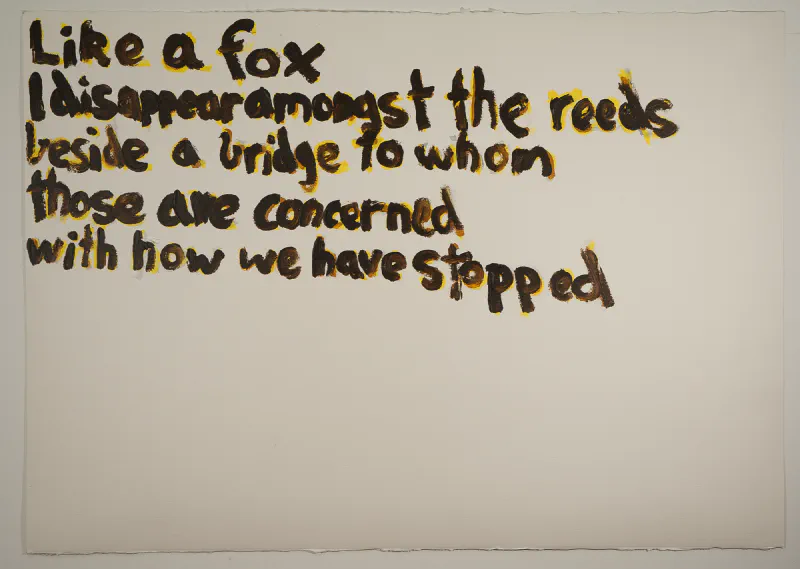 Like a fox
I disappear amongst the reeds
beside a bridge to whom
those are concerned
with how we have stopped